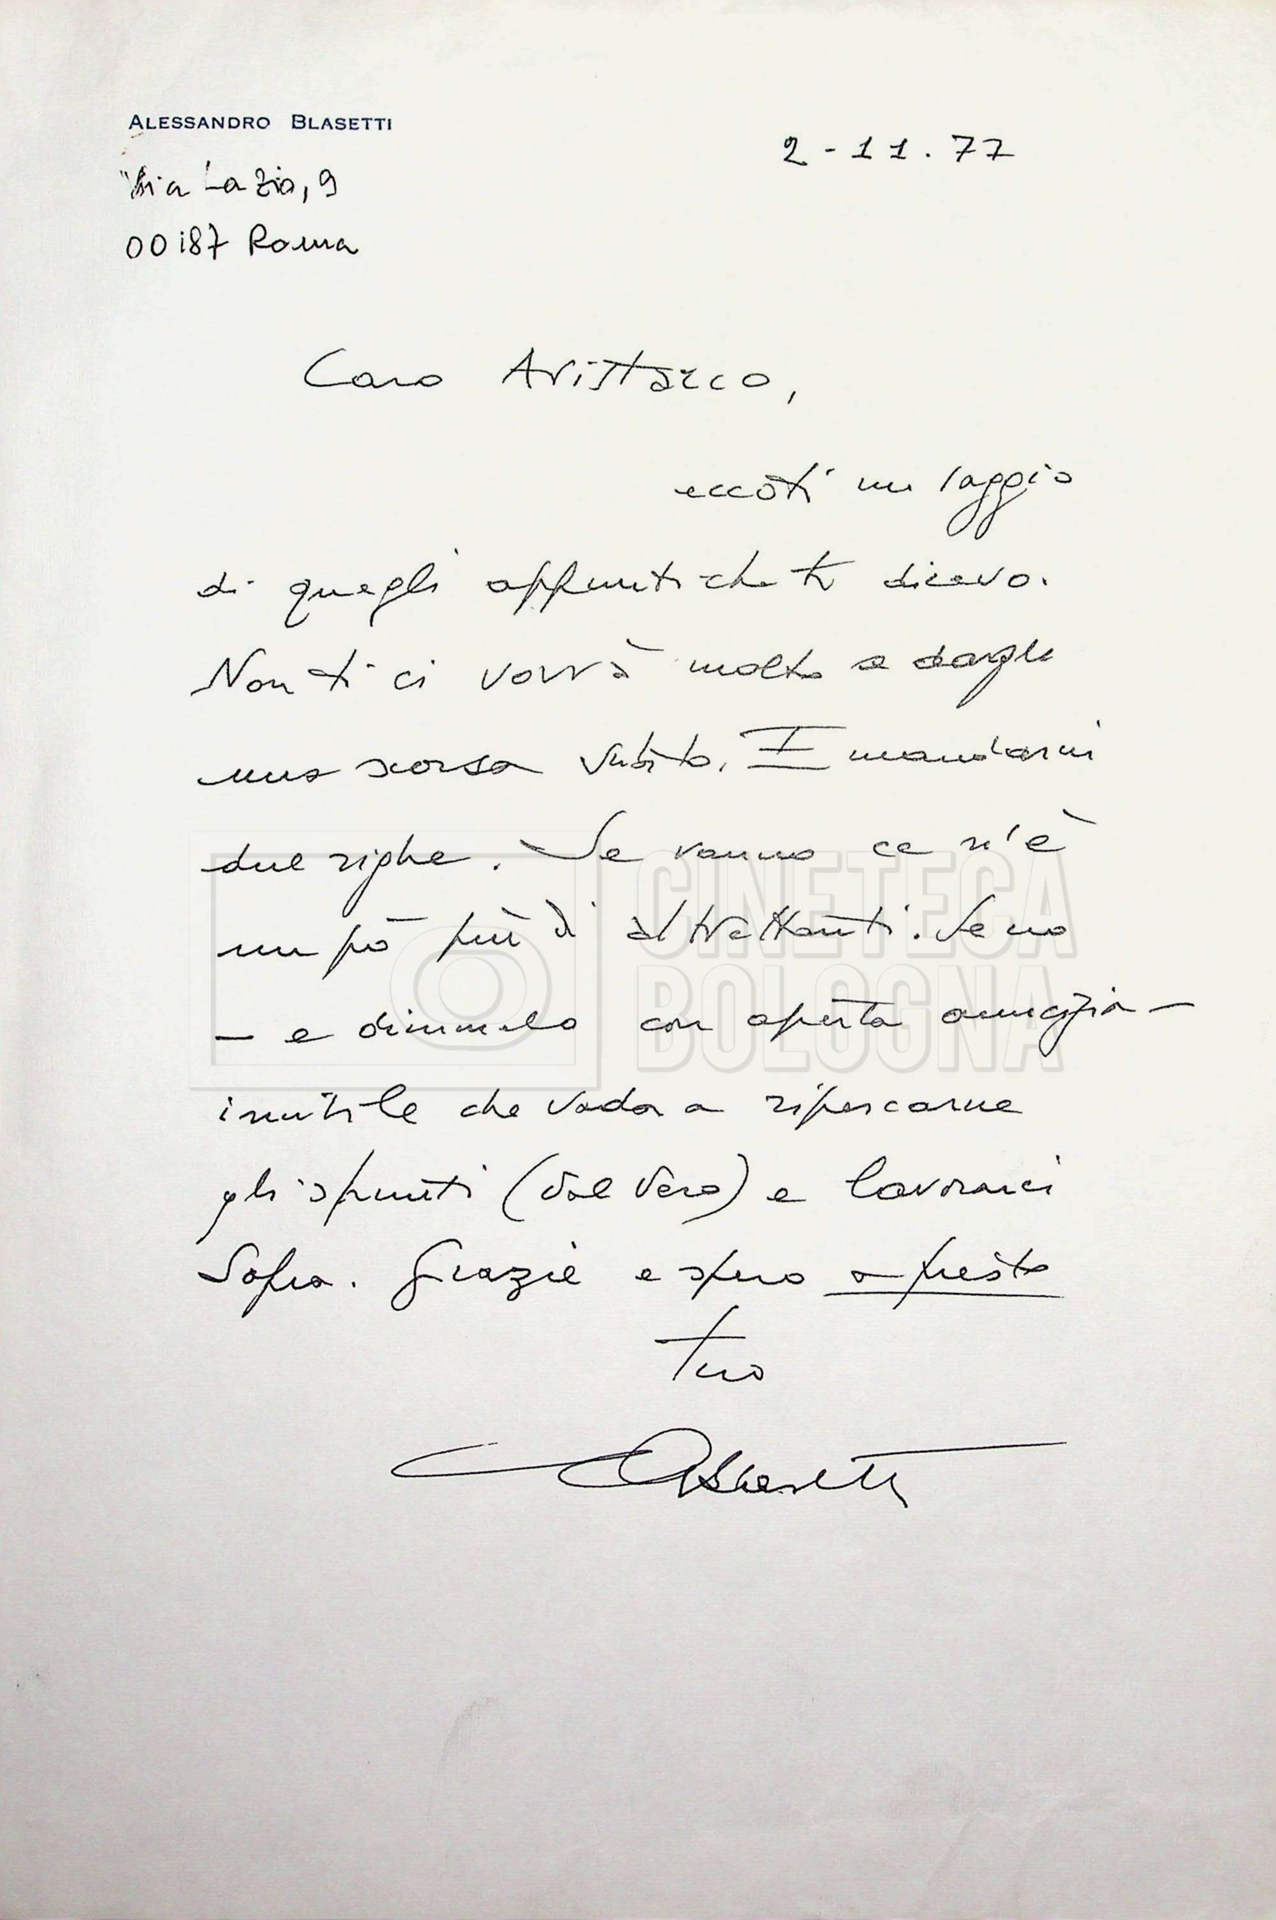 ALESSANDRO BLASETTI
2-11.77
Via Lazio, 9
00187 Roma
Caro Aristarco,
eccoti un saggio
di quegli appunti che ti dicevo.
Non ti ci vorrà molto a dargli
una scorsa subito. E mandarmi
due righe. Se vanno ce n'è
un pò più di altrettanti. Se no
- e dimmelo con aperta amicizia -
inutile che vada a ripescarne
gli spunti (dal vero) e lavorarci
sopra. Grazie e spero a presto
tuo
ABlasetti
CINETECA
BOLOGNA